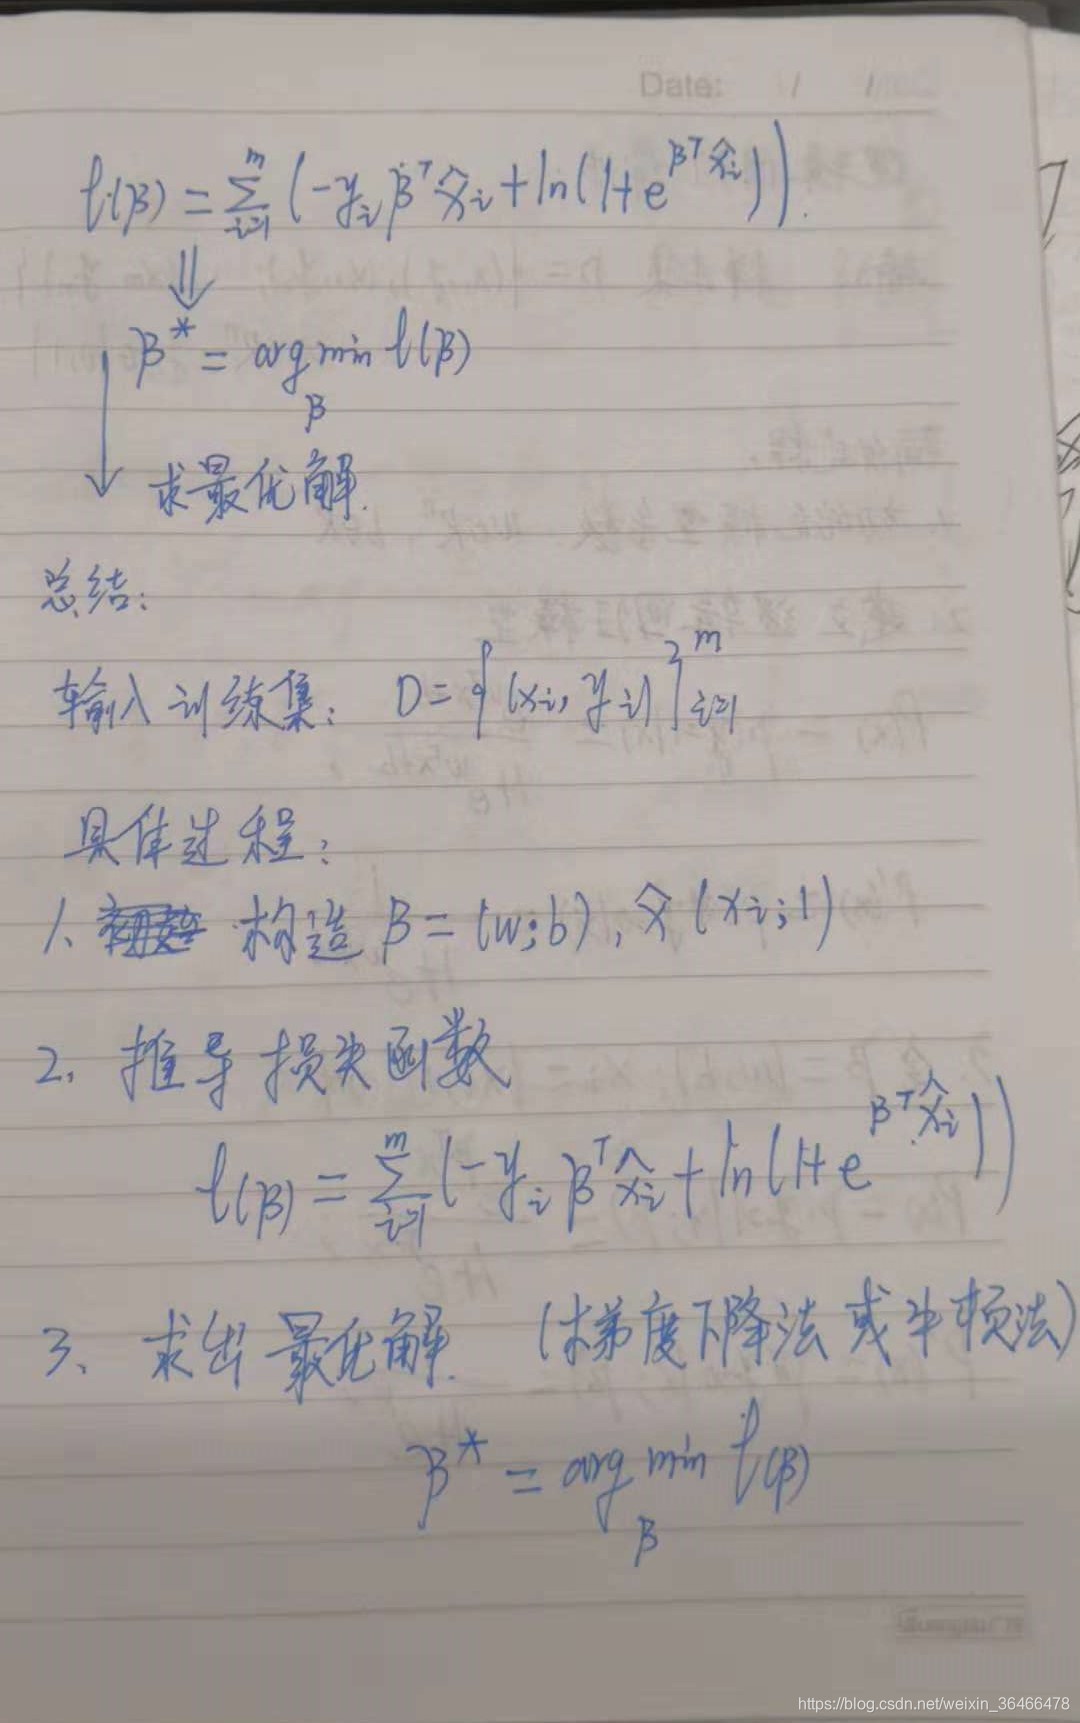 Date: / /
ℓ(β) = Σ_{i=1}^{m} (-y_i β^T x̂_i + ln(1+e^{β^T x̂_i})).
⇓
β* = arg min_β ℓ(β)
↓ 求最优解.
总结:
输入训练集: D = {(x_i, y_i)}_{i=1}^{m}
具体过程:
1. 构造 β = (w; b), x̂ (x_i; 1)
2. 推导损失函数
ℓ(β) = Σ_{i=1}^{m} (-y_i β^T x̂_i + ln(1+e^{β^T x̂_i}))
3. 求出最优解. (梯度下降法或牛顿法)
β* = arg min_β ℓ(β)
https://blog.csdn.net/weixin_36466478